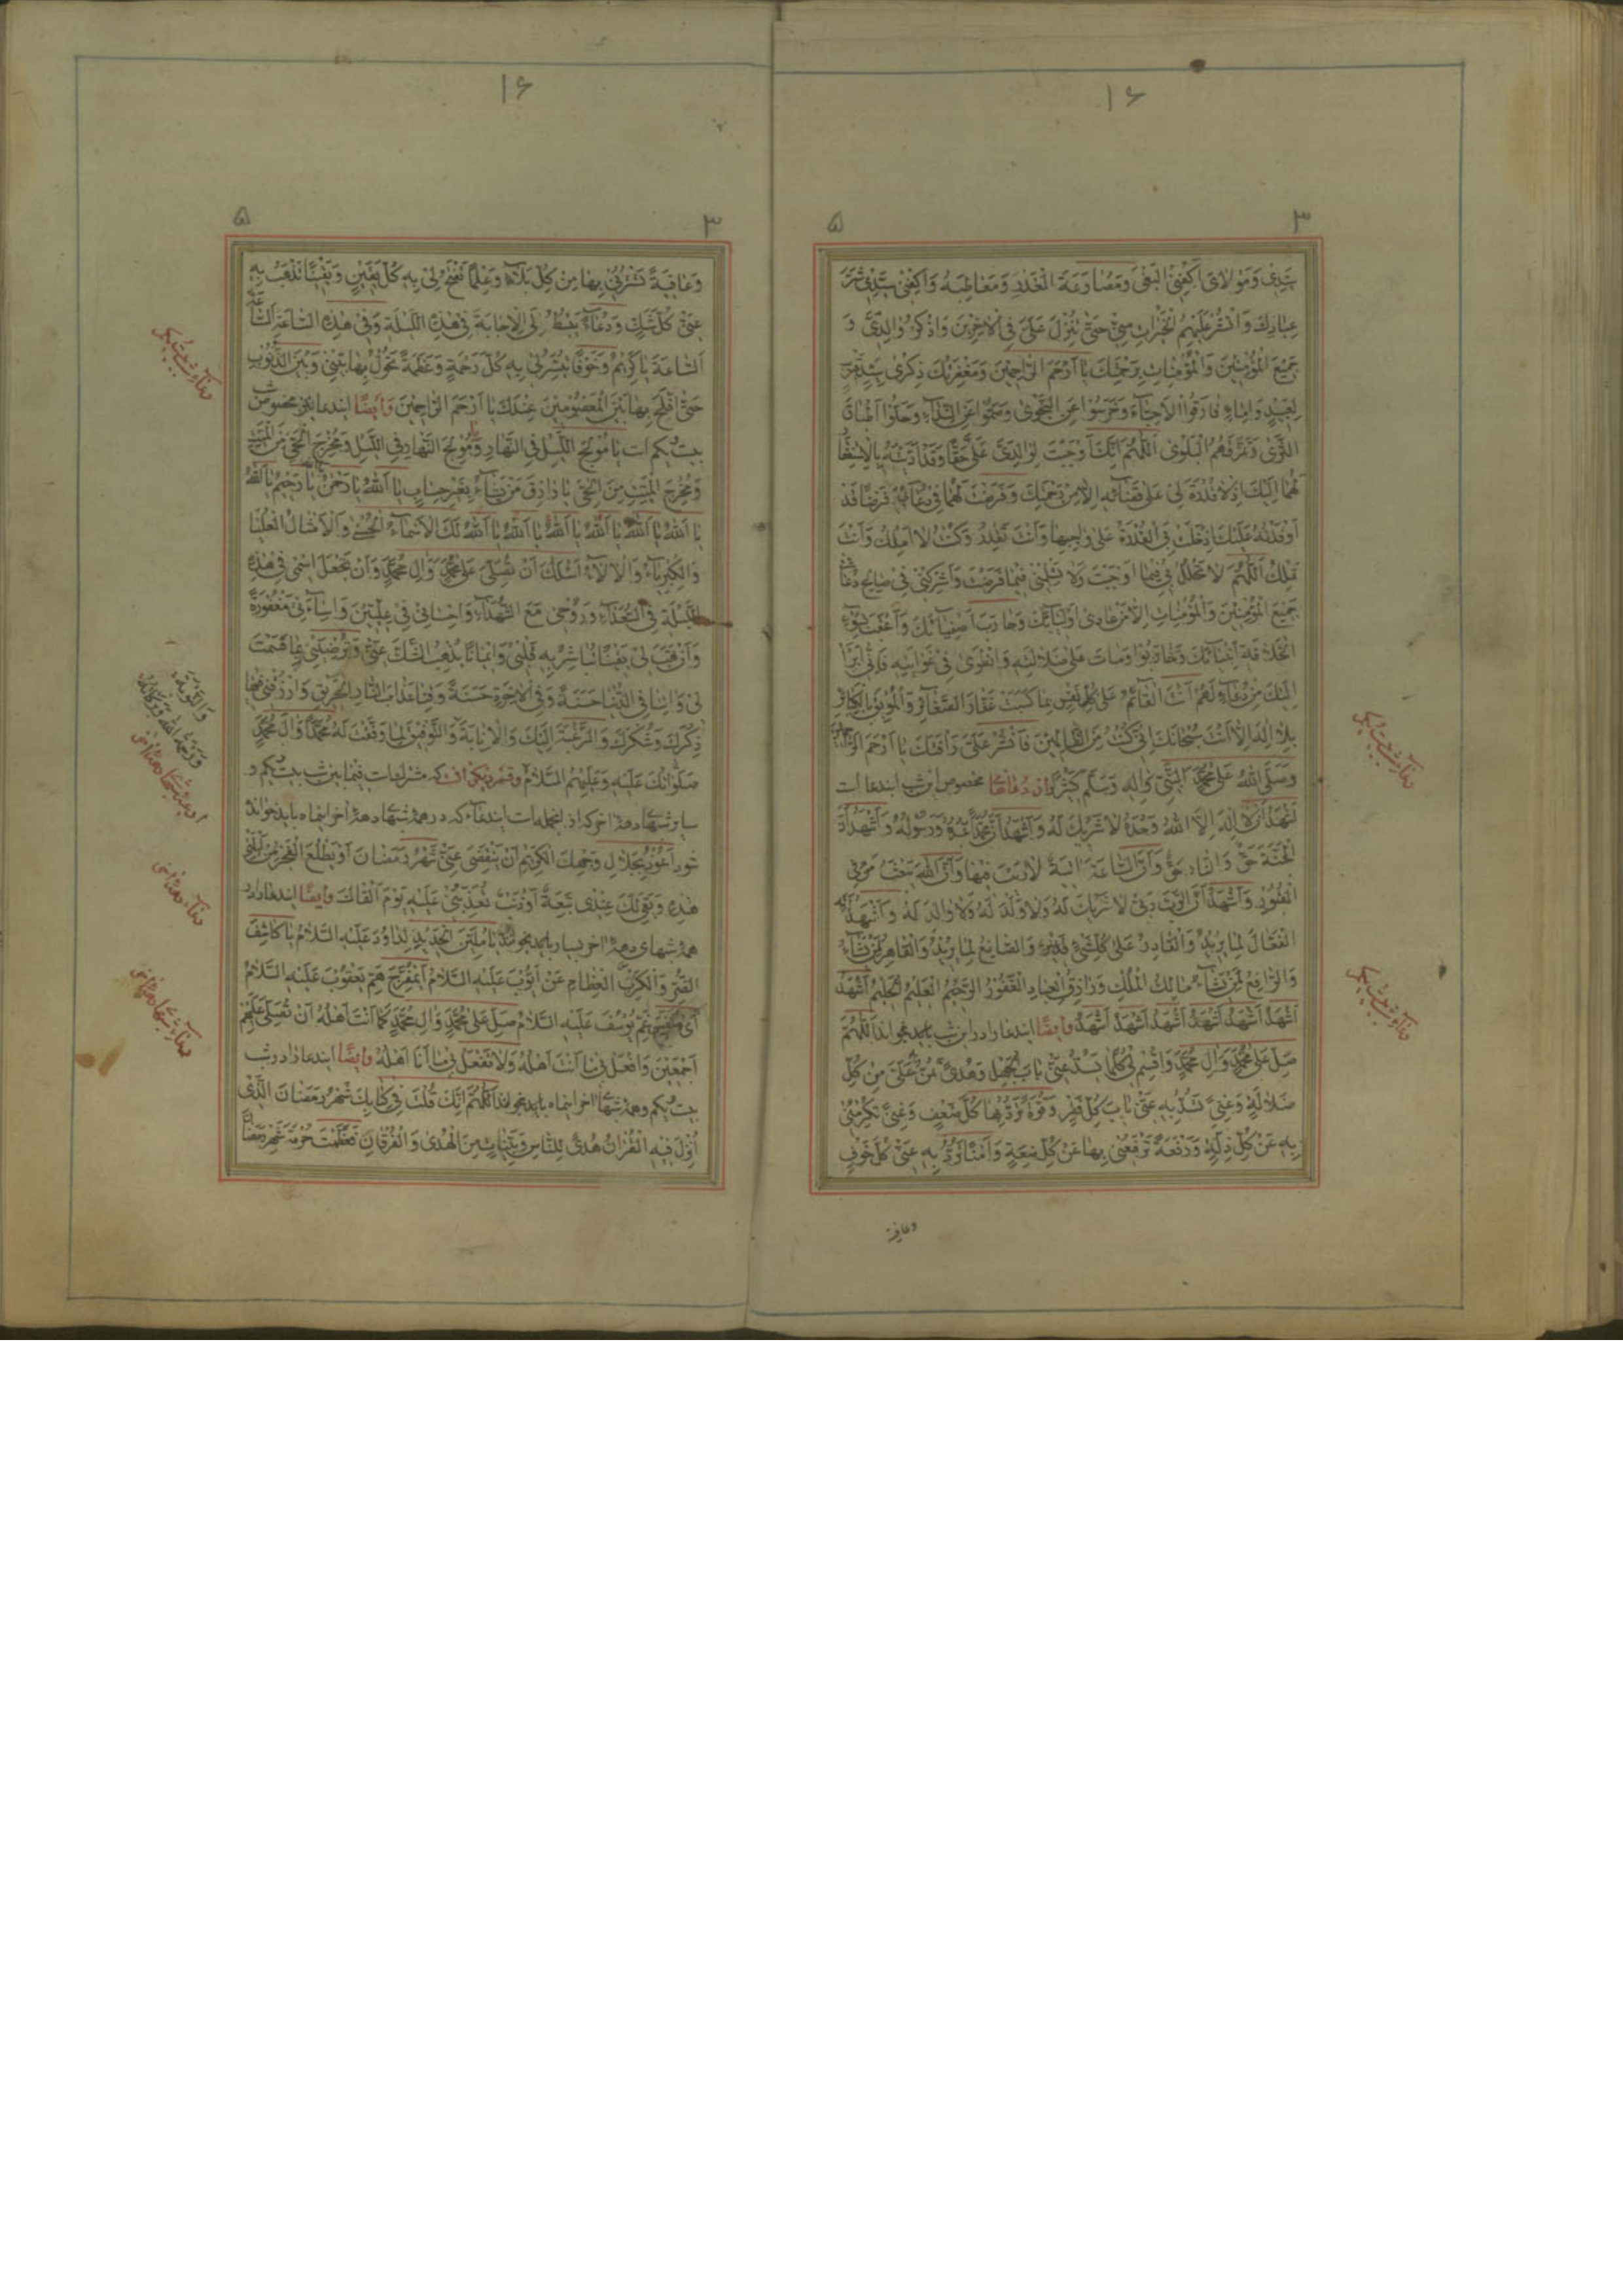 ١۶
٣
۵
سَيِّدِي وَمَوْلَايَ اكْفِنِي الْبَغْيَ وَمُصَارَعَةَ الْغَدْرِ وَمَعَاطِبَهُ وَاكْفِنِي سَيِّدِي شَرَّ
عِبَادِكَ وَانْشُرْ عَلَيْهِمُ الْخَيْرَاتِ مِنِّي حَتّٰى تُنْزِلَ عَلَيَّ فِي الْآخِرِينَ وَاذْكُرْ وَالِدَيَّ وَ
جَمِيعَ الْمُؤْمِنِينَ وَالْمُؤْمِنَاتِ بِرَحْمَتِكَ يَا أَرْحَمَ الرَّاحِمِينَ وَمَغْفِرَتِكَ ذِكْرَى سَيِّدٍ قَرِيبٍ
لِعَبِيدٍ وَإِمَاءٍ فَارَقُوا الْأَحِبَّاءَ وَخَرِسُوا عَنِ النَّجْوٰى وَصَمُّوا عَنِ النِّدَاءِ وَحَلُّوا أَطْبَاقَ
الثَّرٰى وَتَمَزَّقَهُمُ الْبَلْوٰى اَللّٰهُمَّ إِنَّكَ أَوْجَبْتَ لِوَالِدَيَّ عَلَيَّ حَقًّا وَقَدْ أَدَّيْتُهُ بِالْاِسْتِغْفَارِ
لَهُمَا إِلَيْكَ إِذْ لَا قُدْرَةَ لِي عَلٰى قَضَائِهِ إِلَّا مِنْ رَحْمَتِكَ وَفَرَضْتَ لَهُمَا فِي دُعَائِي فَرْضًا قَدْ
أَوْفَدْتُهُ عَلَيْكَ إِذْ خَلَّتْ بِيَ الْقُدْرَةُ عَلٰى وَاجِبِهَا وَأَنْتَ تَقْدِرُ وَكُنْتُ لَا أَمْلِكُ وَأَنْتَ
تَمْلِكُ اَللّٰهُمَّ لَا تَحْلُلْ بِي فِيمَا أَوْجَبْتَ وَلَا تُسْلِمْنِي فِيمَا فَرَضْتَ وَأَشْرِكْنِي فِي صَالِحِ دُعَائِي
جَمِيعَ الْمُؤْمِنِينَ وَالْمُؤْمِنَاتِ إِلَّا مَنْ عَادٰى أَوْلِيَائَكَ وَحَارَبَ أَصْفِيَائَكَ وَأَعْقَبَ بِسُوءِ
الْخِلَافَةِ أَنْبِيَائَكَ وَمَاتَ عَلٰى ضَلَالَتِهِ وَانْطَوٰى فِي غَوَايَتِهِ فَإِنِّي أَبْرَأُ
إِلَيْكَ مِنْ دُعَاءٍ لَهُمْ أَنْتَ الْقَائِمُ عَلٰى كُلِّ نَفْسٍ بِمَا كَسَبَتْ غَفَّارُ الصَّغَائِرِ وَالْمُوبِقُ بِالْكَبَائِرِ
بِلَا إِلٰهَ إِلَّا أَنْتَ سُبْحَانَكَ إِنِّي كُنْتُ مِنَ الظَّالِمِينَ فَانْشُرْ عَلَيَّ رَأْفَتَكَ يَا أَرْحَمَ الرَّاحِمِينَ
وَصَلَّى اللّٰهُ عَلٰى مُحَمَّدٍ النَّبِيِّ وَآلِهِ وَسَلَّمَ كَثِيرًا از دعاهاى مخصوص اين شب ايندعا است
أَشْهَدُ أَنْ لَا إِلٰهَ إِلَّا اللّٰهُ وَحْدَهُ لَا شَرِيكَ لَهُ وَأَشْهَدُ أَنَّ مُحَمَّدًا عَبْدُهُ وَرَسُولُهُ وَأَشْهَدُ أَنَّ
الْجَنَّةَ حَقٌّ وَالنَّارَ حَقٌّ وَأَنَّ السَّاعَةَ آتِيَةٌ لَا رَيْبَ فِيهَا وَأَنَّ اللّٰهَ يَبْعَثُ مَنْ فِي
الْقُبُورِ وَأَشْهَدُ أَنَّ الرَّبَّ رَبِّي لَا شَرِيكَ لَهُ وَلَا وَلَدَ لَهُ وَلَا وَالِدَ لَهُ وَأَشْهَدُ أَنَّهُ
الْفَعَّالُ لِمَا يُرِيدُ وَالْقَادِرُ عَلٰى كُلِّ شَيْءٍ قَدِيرٌ وَالصَّانِعُ لِمَا يُرِيدُ وَالْقَاهِرُ مَنْ يَشَاءُ
وَالرَّافِعُ مَنْ يَشَاءُ مَالِكُ الْمُلْكِ وَرَازِقُ الْعِبَادِ الْغَفُورُ الرَّحِيمُ الْعَلِيمُ الْحَلِيمُ أَشْهَدُ
أَشْهَدُ أَشْهَدُ أَشْهَدُ أَشْهَدُ أَشْهَدُ أَشْهَدُ وايضًا ايندعا را در اين شب بايد بخواند اَللّٰهُمَّ
صَلِّ عَلٰى مُحَمَّدٍ وَآلِ مُحَمَّدٍ وَاقْسِمْ لِي حُكْمًا يَسُدُّ عَنِّي بَابَ الْجَهْلِ وَهُدًى تَمُنُّ بِهِ عَلَيَّ مِنْ كُلِّ
ضَلَالَةٍ وَغِنًى تَسُدُّ بِهِ عَنِّي بَابَ كُلِّ فَقْرٍ وَقُوَّةً تَرُدُّ بِهَا كُلَّ ضَعْفٍ وَعِزًّا تُكْرِمُنِي
بِهِ عَنْ كُلِّ ذُلٍّ وَرَفْعَةً تَرْفَعُنِي بِهَا عَنْ كُلِّ ضَعَةٍ وَأَمْنًا تَرُدُّ بِهِ عَنِّي كُلَّ خَوْفٍ
وعافية
١۶
٣
۵
وَعَافِيَةً تَسْتُرُنِي بِهَا مِنْ كُلِّ بَلَاءٍ وَعِلْمًا تَفْتَحُ لِي بِهِ كُلَّ يَقِينٍ وَيَقِينًا تُذْهِبُ بِهِ
عَنِّي كُلَّ شَكٍّ وَدُعَاءً تَبْسُطُ لِي الْإِجَابَةَ فِي هٰذِهِ اللَّيْلَةِ وَفِي هٰذِهِ السَّاعَةِ السَّاعَةَ
السَّاعَةَ يَا كَرِيمُ وَخَوْفًا تُيَسِّرُ لِي بِهِ كُلَّ رَحْمَةٍ وَعِصْمَةً تَحُولُ بِهَا بَيْنِي وَبَيْنَ الذُّنُوبِ
حَتّٰى أُفْلِحَ بِهَا بَيْنَ الْمَعْصُومِينَ عِنْدَكَ يَا أَرْحَمَ الرَّاحِمِينَ وايضًا ايندعا نيز مخصوص شب
بيست يكم است يَا مُولِجَ اللَّيْلِ فِي النَّهَارِ وَمُولِجَ النَّهَارِ فِي اللَّيْلِ وَمُخْرِجَ الْحَيِّ مِنَ الْمَيِّتِ
وَمُخْرِجَ الْمَيِّتِ مِنَ الْحَيِّ يَا رَازِقَ مَنْ يَشَاءُ بِغَيْرِ حِسَابٍ يَا اَللّٰهُ يَا رَحْمٰنُ يَا رَحِيمُ يَا اَللّٰهُ
يَا اَللّٰهُ يَا اَللّٰهُ يَا اَللّٰهُ يَا اَللّٰهُ يَا اَللّٰهُ يَا اَللّٰهُ لَكَ الْأَسْمَاءُ الْحُسْنٰى وَالْأَمْثَالُ الْعُلْيَا
وَالْكِبْرِيَاءُ وَالْآلَاءُ أَسْئَلُكَ أَنْ تُصَلِّيَ عَلٰى مُحَمَّدٍ وَآلِ مُحَمَّدٍ وَأَنْ تَجْعَلَ اسْمِي فِي هٰذِهِ
اللَّيْلَةِ فِي السُّعَدَاءِ وَرُوحِي مَعَ الشُّهَدَاءِ وَإِحْسَانِي فِي عِلِّيِّينَ وَإِسَاءَتِي مَغْفُورَةً
وَأَنْ تَهَبَ لِي يَقِينًا تُبَاشِرُ بِهِ قَلْبِي وَإِيمَانًا يُذْهِبُ الشَّكَّ عَنِّي وَتُرْضِيَنِي بِمَا قَسَمْتَ
لِي وَآتِنَا فِي الدُّنْيَا حَسَنَةً وَفِي الْآخِرَةِ حَسَنَةً وَقِنَا عَذَابَ النَّارِ الْحَرِيقِ وَارْزُقْنِي فِيهَا
ذِكْرَكَ وَشُكْرَكَ وَالرَّغْبَةَ إِلَيْكَ وَالْإِنَابَةَ وَالتَّوْفِيقَ لِمَا وَفَّقْتَ لَهُ مُحَمَّدًا وَآلَ مُحَمَّدٍ
صَلَوَاتُكَ عَلَيْهِ وَعَلَيْهِمُ السَّلَامُ وقسم ديگر آنست كه مشترك است فيما بين شب بيست يكم و
ساير شبهاى دههٔ آخر كه از انجمله است ايندعا كه در همهٔ شبهاى دههٔ آخر اينماه بايد خوانده
شود أَعُوذُ بِجَلَالِ وَجْهِكَ الْكَرِيمِ أَنْ يَنْقَضِيَ عَنِّي شَهْرُ رَمَضَانَ أَوْ يَطْلُعَ الْفَجْرُ مِنْ لَيْلَتِي
هٰذِهِ وَبَقِيَ لَكَ عِنْدِي تَبِعَةٌ أَوْ ذَنْبٌ تُعَذِّبُنِي عَلَيْهِ يَوْمَ أَلْقَاكَ وايضًا ايندعا را در
همهٔ شبهاى دههٔ آخر بسيار بايد بخواند يَا مُلَيِّنَ الْحَدِيدِ لِدَاوُدَ عَلَيْهِ السَّلَامُ يَا كَاشِفَ
الضُّرِّ وَالْكَرْبِ الْعِظَامِ عَنْ أَيُّوبَ عَلَيْهِ السَّلَامُ أَيْ مُفَرِّجَ هَمِّ يَعْقُوبَ عَلَيْهِ السَّلَامُ
أَيْ مُنَفِّسَ غَمِّ يُوسُفَ عَلَيْهِ السَّلَامُ صَلِّ عَلٰى مُحَمَّدٍ وَآلِ مُحَمَّدٍ كَمَا أَنْتَ أَهْلُهُ أَنْ تُصَلِّيَ عَلَيْهِمْ
أَجْمَعِينَ وَافْعَلْ بِي مَا أَنْتَ أَهْلُهُ وَلَا تَفْعَلْ بِي مَا أَنَا أَهْلُهُ وايضًا ايندعا را در شب
بيست يكم و همهٔ شبهاى آخر اينماه بايد بخواند اَللّٰهُمَّ إِنَّكَ قُلْتَ فِي كِتَابِكَ شَهْرُ رَمَضَانَ الَّذِي
أُنْزِلَ فِيهِ الْقُرْآنُ هُدًى لِلنَّاسِ وَبَيِّنَاتٍ مِنَ الْهُدٰى وَالْفُرْقَانِ فَعَظَّمْتَ حُرْمَةَ شَهْرِ رَمَضَانَ